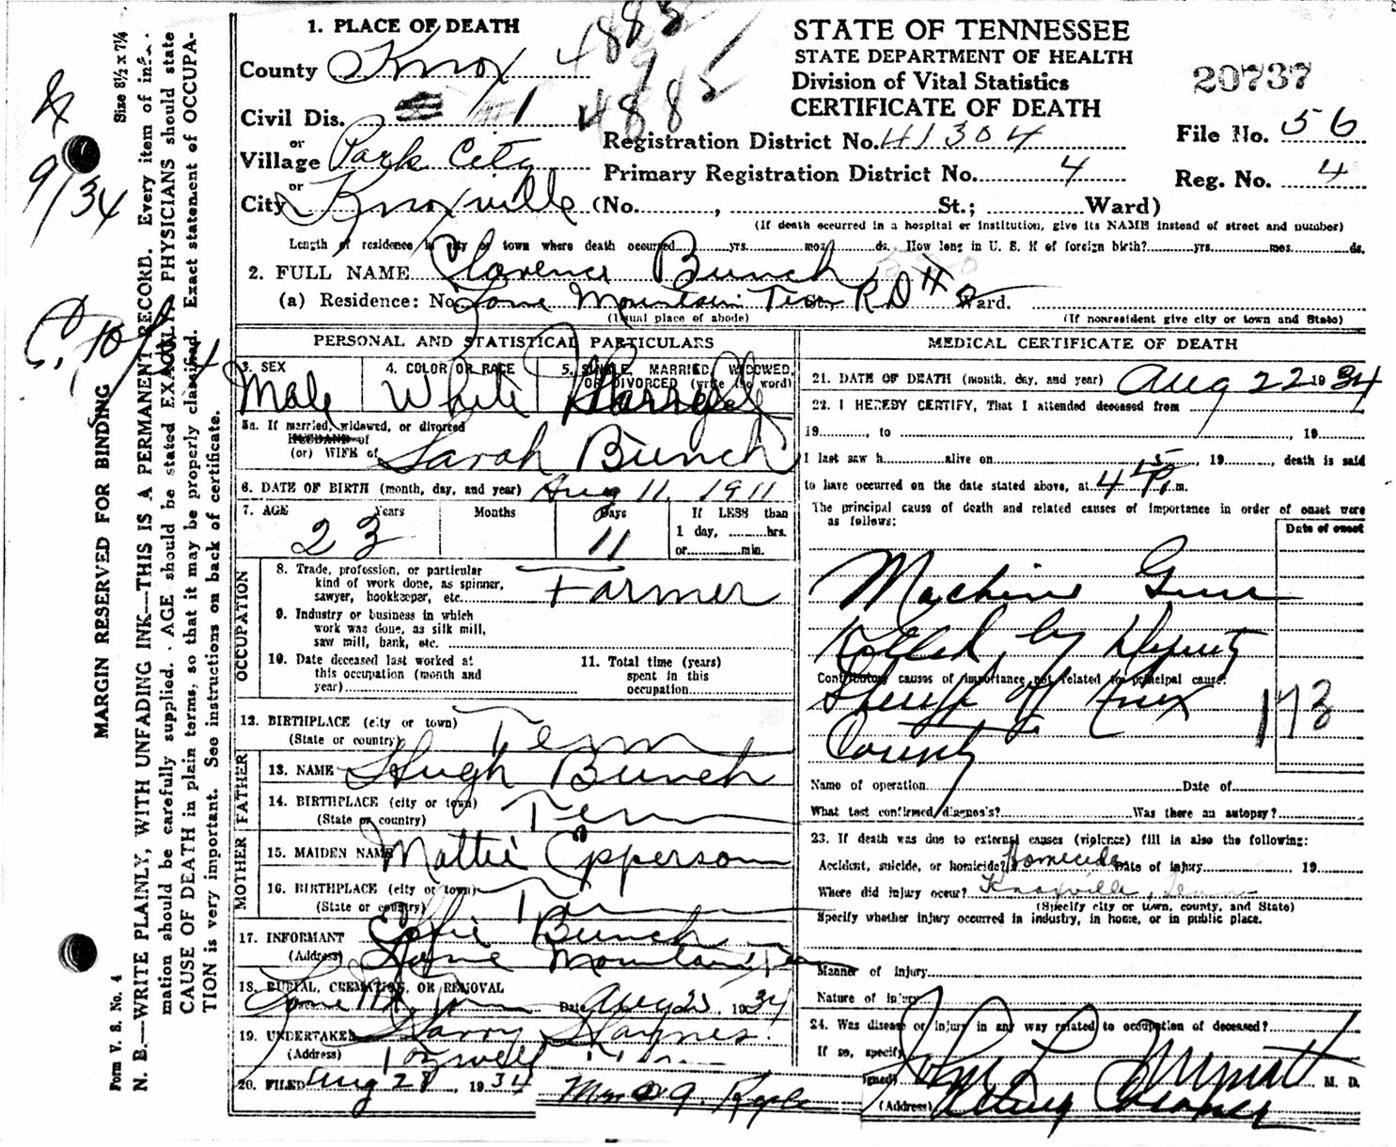 1. PLACE OF DEATH
County Knox
Civil Dis. 1
or
Village Park City
or
City Knoxville (No. , St.; Ward)
4885
9
4885
STATE OF TENNESSEE
STATE DEPARTMENT OF HEALTH
Division of Vital Statistics
CERTIFICATE OF DEATH
20737
Registration District No. 41304
File No. 56
Primary Registration District No. 4
Reg. No. 4
(If death occurred in a hospital or institution, give its NAME instead of street and number)
Length of residence in city or town where death occurred yrs. mos. ds. How long in U. S. if of foreign birth? yrs. mos. ds.
2. FULL NAME Clarence Bunch
(a) Residence: No. Lone Mountain Tenn R D # 2 Ward.
(Usual place of abode) (If nonresident give city or town and State)
PERSONAL AND STATISTICAL PARTICULARS
3. SEX 4. COLOR OR RACE 5. SINGLE, MARRIED, WIDOWED, OR DIVORCED (write the word)
Male White Married
5a. If married, widowed, or divorced
HUSBAND of
(or) WIFE of Sarah Bunch
6. DATE OF BIRTH (month, day, and year) Aug 11, 1911
7. AGE Years Months Days If LESS than
1 day, hrs.
or min.
23 11
OCCUPATION
8. Trade, profession, or particular
kind of work done, as spinner,
sawyer, bookkeeper, etc. Farmer
9. Industry or business in which
work was done, as silk mill,
saw mill, bank, etc.
10. Date deceased last worked at
this occupation (month and
year)
11. Total time (years)
spent in this
occupation
12. BIRTHPLACE (city or town)
(State or country) Tenn
FATHER
13. NAME Hugh Bunch
14. BIRTHPLACE (city or town)
(State or country) Tenn
MOTHER
15. MAIDEN NAME Mattie Epperson
16. BIRTHPLACE (city or town)
(State or country) Tenn
17. INFORMANT Effie Bunch
(Address) Lone Mountain Tenn
18. BURIAL, CREMATION, OR REMOVAL
Lone Mt. Tenn Date Aug 25, 1934
19. UNDERTAKER Harry Haynes.
(Address) Tazwell Tenn
20. FILED Aug 28, 1934
MEDICAL CERTIFICATE OF DEATH
21. DATE OF DEATH (month, day, and year) Aug 22 1934
22. I HEREBY CERTIFY, That I attended deceased from
19 , to , 19
I last saw h alive on , 19 , death is said
to have occurred on the date stated above, at 4 15 P. m.
The principal cause of death and related causes of importance in order of onset were
as follows:
Date of onset
Machine Gun
Killed by Deputy
Contributory causes of importance not related to principal cause:
Sheriff of Knox
County
173
Name of operation Date of
What test confirmed diagnosis? Was there an autopsy?
23. If death was due to external causes (violence) fill in also the following:
Accident, suicide, or homicide? Homicide Date of injury 19
Where did injury occur? Knoxville, Tenn
(Specify city or town, county, and State)
Specify whether injury occurred in industry, in home, or in public place.
Manner of injury
Nature of injury
24. Was disease or injury in any way related to occupation of deceased?
If so, specify
(Signed) John L M. D.
(Address) Acting Coroner
Form V. S. No. 4
MARGIN RESERVED FOR BINDING
Size 8½ x 7¼
N. B.—WRITE PLAINLY, WITH UNFADING INK—THIS IS A PERMANENT RECORD. Every item of infor-
mation should be carefully supplied. AGE should be stated EXACTLY. PHYSICIANS should state
CAUSE OF DEATH in plain terms, so that it may be properly classified. Exact statement of OCCUPA-
TION is very important. See instructions on back of certificate.
9/34